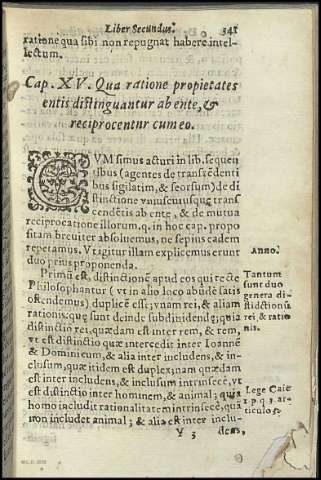 Liber Secundus. 341
ratione qua sibi non repugnat habere intel-
lectum.
Cap. XV. Qua ratione propietates
entis distinguantur ab ente, &
reciprocentur cum eo.
CVM simus acturi in lib. sequen
tibus (agentes de transcēdenti
bus sigilatim, & seorsum) de di
stinctione vniuscuiusque trans
cendētis ab ente, & de mutua
reciprocatione illorum, q. in hoc cap. propo
sitam breuiter absoluemus, ne sepius eadem
repetamus. Vt igitur illam explicemus erunt
duo prius proponenda.
Anno.
Primū est, distinctionē apud eos qui recte
Philosophantur (vt in alio loco abūde satis
ostendemus) duplicē esse; vnam rei, & aliam
rationis: quę sunt deinde subdiuidendę; quia
distinctio rei, quædam est inter rem, & rem,
vt est distīctio quæ intercedit inter Ioannē
& Dominicum, & alia inter includens, & in-
clusum, quæ itidem est duplex; nam quædam
est inter includens, & inclusum intrinsecè, vt
est distinctio inter hominem, & animal; quia
homo includit rationalitatem intrinsecè, quā
non includet animal; & alia est inter inclu-
Tantum
sunt duo
genera di-
stīctionū
rei & ratio
nis.
Lege Caie
1. p. q. ar-
ticulo
Y 3 dens,